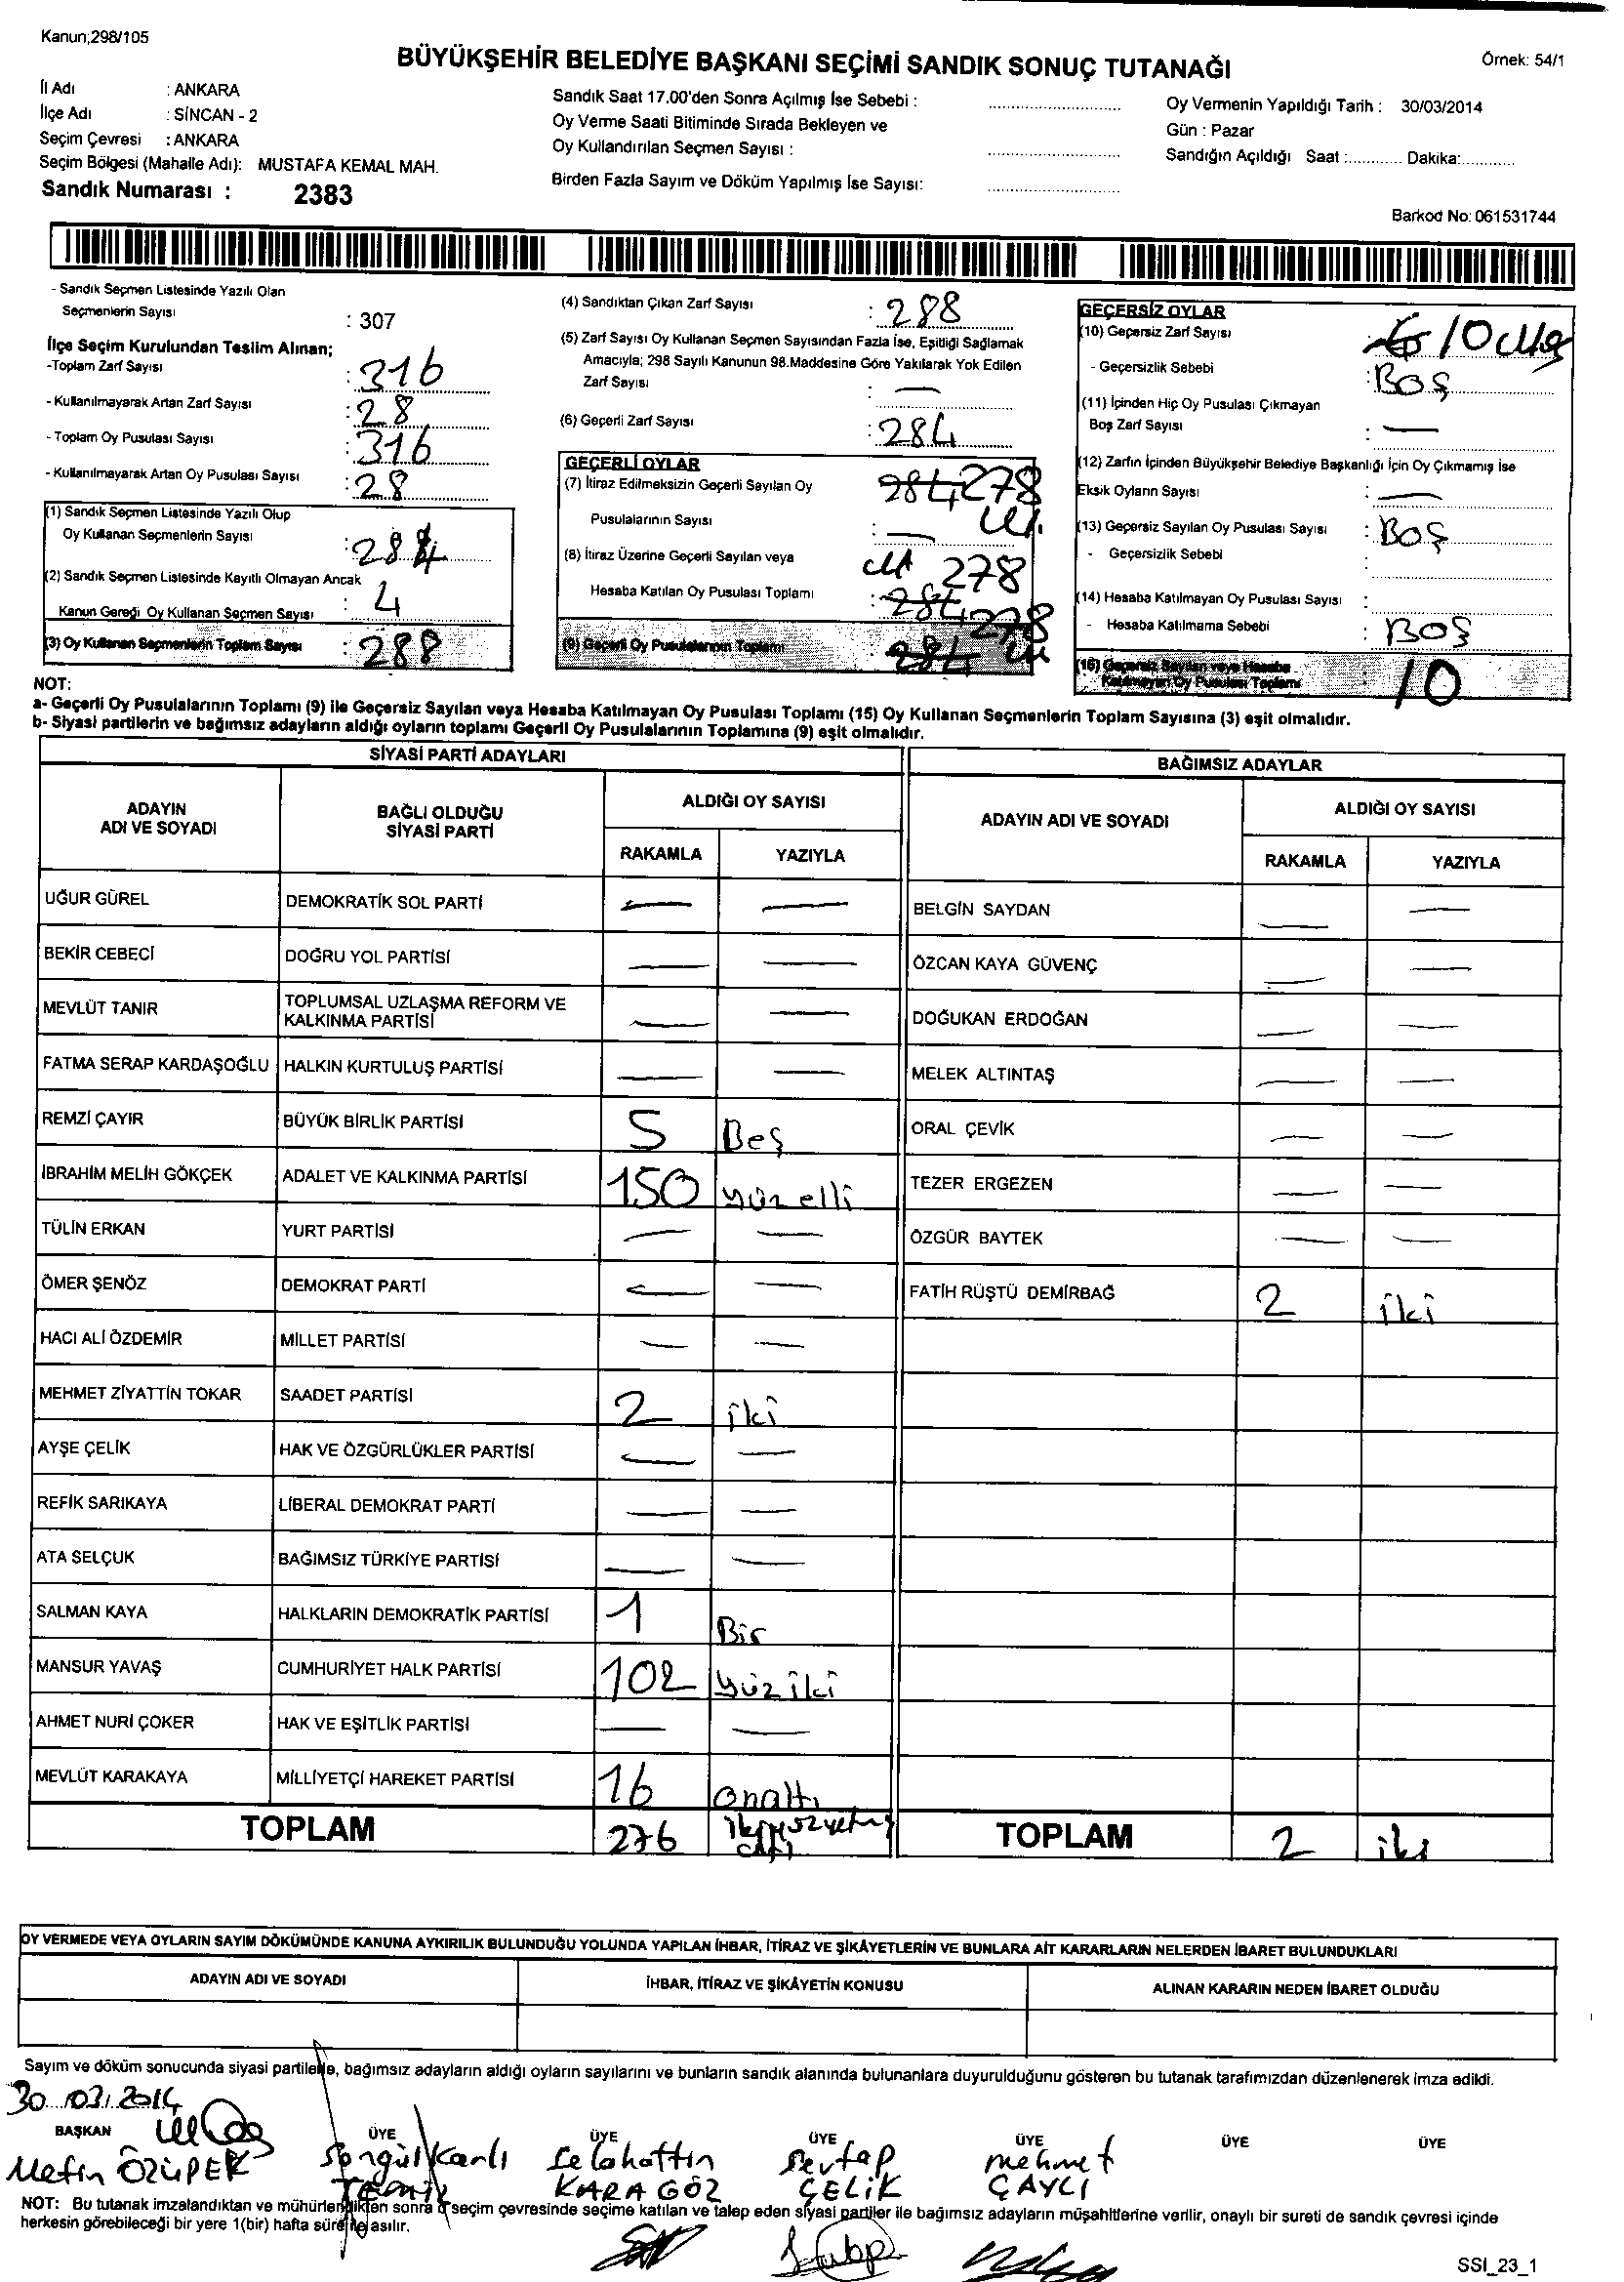 Kanun;298/105
BÜYÜKŞEHİR BELEDİYE BAŞKANI SEÇİMİ SANDIK SONUÇ TUTANAĞI
Örnek: 54/1
İl Adı : ANKARA
İlçe Adı : SİNCAN - 2
Seçim Çevresi : ANKARA
Seçim Bölgesi (Mahalle Adı): MUSTAFA KEMAL MAH.
Sandık Numarası : 2383
Sandık Saat 17.00'den Sonra Açılmış İse Sebebi :
Oy Verme Saati Bitiminde Sırada Bekleyen ve
Oy Kullandırılan Seçmen Sayısı :
Birden Fazla Sayım ve Döküm Yapılmış İse Sayısı:
Oy Vermenin Yapıldığı Tarih : 30/03/2014
Gün : Pazar
Sandığın Açıldığı Saat :............ Dakika:............
Barkod No: 061531744
- Sandık Seçmen Listesinde Yazılı Olan
Seçmenlerin Sayısı : 307
İlçe Seçim Kurulundan Teslim Alınan;
-Toplam Zarf Sayısı : 316
- Kullanılmayarak Artan Zarf Sayısı : 28
- Toplam Oy Pusulası Sayısı : 316
- Kullanılmayarak Artan Oy Pusulası Sayısı : 28
(1) Sandık Seçmen Listesinde Yazılı Olup
Oy Kullanan Seçmenlerin Sayısı : 284
(2) Sandık Seçmen Listesinde Kayıtlı Olmayan Ancak
Kanun Gereği Oy Kullanan Seçmen Sayısı : 4
(3) Oy Kullanan Seçmenlerin Toplam Sayısı : 288
(4) Sandıktan Çıkan Zarf Sayısı : 288
(5) Zarf Sayısı Oy Kullanan Seçmen Sayısından Fazla İse, Eşitliği Sağlamak
Amacıyla; 298 Sayılı Kanunun 98.Maddesine Göre Yakılarak Yok Edilen
Zarf Sayısı : —
(6) Geçerli Zarf Sayısı : 284
GEÇERLİ OYLAR
(7) İtiraz Edilmeksizin Geçerli Sayılan Oy 284 278
Pusulalarının Sayısı : —
(8) İtiraz Üzerine Geçerli Sayılan veya 278
Hesaba Katılan Oy Pusulası Toplamı : 284
278
(9) Geçerli Oy Pusulalarının Toplamı 284
GEÇERSİZ OYLAR
(10) Geçersiz Zarf Sayısı 10
- Geçersizlik Sebebi : BOŞ
(11) İçinden Hiç Oy Pusulası Çıkmayan
Boş Zarf Sayısı : —
(12) Zarfın İçinden Büyükşehir Belediye Başkanlığı İçin Oy Çıkmamış İse
Eksik Oyların Sayısı : —
(13) Geçersiz Sayılan Oy Pusulası Sayısı : BOŞ
- Geçersizlik Sebebi :
(14) Hesaba Katılmayan Oy Pusulası Sayısı :
- Hesaba Katılmama Sebebi : BOŞ
(15) Geçersiz Sayılan veya Hesaba
Katılmayan Oy Pusulası Toplamı : 10
NOT:
a- Geçerli Oy Pusulalarının Toplamı (9) ile Geçersiz Sayılan veya Hesaba Katılmayan Oy Pusulası Toplamı (15) Oy Kullanan Seçmenlerin Toplam Sayısına (3) eşit olmalıdır.
b- Siyasi partilerin ve bağımsız adayların aldığı oyların toplamı Geçerli Oy Pusulalarının Toplamına (9) eşit olmalıdır.
SİYASİ PARTİ ADAYLARI
ADAYIN ADI VE SOYADI | BAĞLI OLDUĞU SİYASİ PARTİ | ALDIĞI OY SAYISI
RAKAMLA | YAZIYLA
UĞUR GÜREL | DEMOKRATİK SOL PARTİ | — | —
BEKİR CEBECİ | DOĞRU YOL PARTİSİ | — | —
MEVLÜT TANIR | TOPLUMSAL UZLAŞMA REFORM VE KALKINMA PARTİSİ | — | —
FATMA SERAP KARDAŞOĞLU | HALKIN KURTULUŞ PARTİSİ | — | —
REMZİ ÇAYIR | BÜYÜK BİRLİK PARTİSİ | 5 | Beş
İBRAHİM MELİH GÖKÇEK | ADALET VE KALKINMA PARTİSİ | 150 | yüzelli
TÜLİN ERKAN | YURT PARTİSİ | — | —
ÖMER ŞENÖZ | DEMOKRAT PARTİ | — | —
HACI ALİ ÖZDEMİR | MİLLET PARTİSİ | — | —
MEHMET ZİYATTİN TOKAR | SAADET PARTİSİ | 2 | iki
AYŞE ÇELİK | HAK VE ÖZGÜRLÜKLER PARTİSİ | — | —
REFİK SARIKAYA | LİBERAL DEMOKRAT PARTİ | — | —
ATA SELÇUK | BAĞIMSIZ TÜRKİYE PARTİSİ | — | —
SALMAN KAYA | HALKLARIN DEMOKRATİK PARTİSİ | 1 | Bir
MANSUR YAVAŞ | CUMHURİYET HALK PARTİSİ | 102 | yüz iki
AHMET NURİ ÇOKER | HAK VE EŞİTLİK PARTİSİ | — | —
MEVLÜT KARAKAYA | MİLLİYETÇİ HAREKET PARTİSİ | 16 | onaltı
TOPLAM | 276 | ikiyüzyetmiş altı
BAĞIMSIZ ADAYLAR
ADAYIN ADI VE SOYADI | ALDIĞI OY SAYISI
RAKAMLA | YAZIYLA
BELGİN SAYDAN | — | —
ÖZCAN KAYA GÜVENÇ | — | —
DOĞUKAN ERDOĞAN | — | —
MELEK ALTINTAŞ | — | —
ORAL ÇEVİK | — | —
TEZER ERGEZEN | — | —
ÖZGÜR BAYTEK | — | —
FATİH RÜŞTÜ DEMİRBAĞ | 2 | iki
TOPLAM | 2 | iki
OY VERMEDE VEYA OYLARIN SAYIM DÖKÜMÜNDE KANUNA AYKIRILIK BULUNDUĞU YOLUNDA YAPILAN İHBAR, İTİRAZ VE ŞİKÂYETLERİN VE BUNLARA AİT KARARLARIN NELERDEN İBARET BULUNDUKLARI
ADAYIN ADI VE SOYADI | İHBAR, İTİRAZ VE ŞİKÂYETİN KONUSU | ALINAN KARARIN NEDEN İBARET OLDUĞU
Sayım ve döküm sonucunda siyasi partilerle, bağımsız adayların aldığı oyların sayılarını ve bunların sandık alanında bulunanlara duyurulduğunu gösteren bu tutanak tarafımızdan düzenlenerek imza edildi.
30.03.2014
BAŞKAN ÜYE ÜYE ÜYE ÜYE ÜYE ÜYE
Metin ÖZÜPEK Songül Kanlı Selahattin Sevtap Mehmet
KARAGÖZ ÇELİK ÇAYCI
NOT: Bu tutanak imzalandıktan ve mühürlendikten sonra o seçim çevresinde seçime katılan ve talep eden siyasi partiler ile bağımsız adayların müşahitlerine verilir, onaylı bir sureti de sandık çevresi içinde
herkesin görebileceği bir yere 1(bir) hafta süre ile asılır.
SSI_23_1